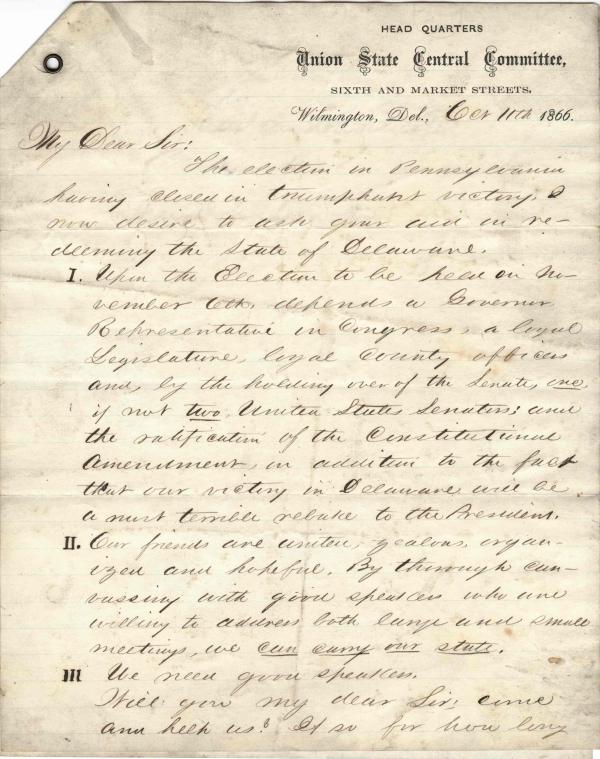 HEAD QUARTERS
Union State Central Committee,
SIXTH AND MARKET STREETS,
Wilmington, Del., Oct 11th 1866.
My Dear Sir:
The election in Pennsylvania
having closed in triumphant victory, I
now desire to ask your aid in re-
deeming the State of Delaware.
I. Upon the Election to be held on No-
vember 6th, depends a Governor
Representative in Congress, a loyal
Legislature, loyal county officers
and, by the holding over of the Senate, one,
if not two, United States Senators; and
the ratification of the Constitutional
Amendment, in addition to the fact
that our victory in Delaware, will be
a most terrible rebuke to the President.
II. Our friends are united, zealous, organ-
ized and hopeful. By thorough can-
vassing with good speakers who are
willing to address both large and small
meetings, we can carry our state.
III We need good speakers.
Will you my dear Sir; come
and help us? If so for how long